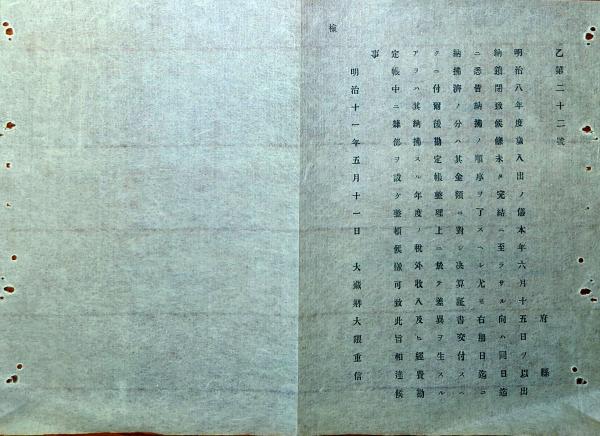 乙第二十二號
府縣
明治八年度歳入出ノ儀本年六月十五日ヲ以出
納鎖閉致候條未タ完結ニ至ラサル向ハ同日迄
ニ悉皆納拂ノ順序ヲ了スヘシ尤モ右期日迄ニ
納拂濟ノ分ハ其金額ニ對シ決算証書交付スヘ
クニ付爾後勘定帳整理上ニ於テ差異ヲ生スル
アラハ其納拂スル年度ノ税外收入及ヒ經費勘
定帳中ニ雑部ヲ設ケ整頓候儀可致此旨相達候
事
明治十一年五月十一日 大藏卿大隈重信